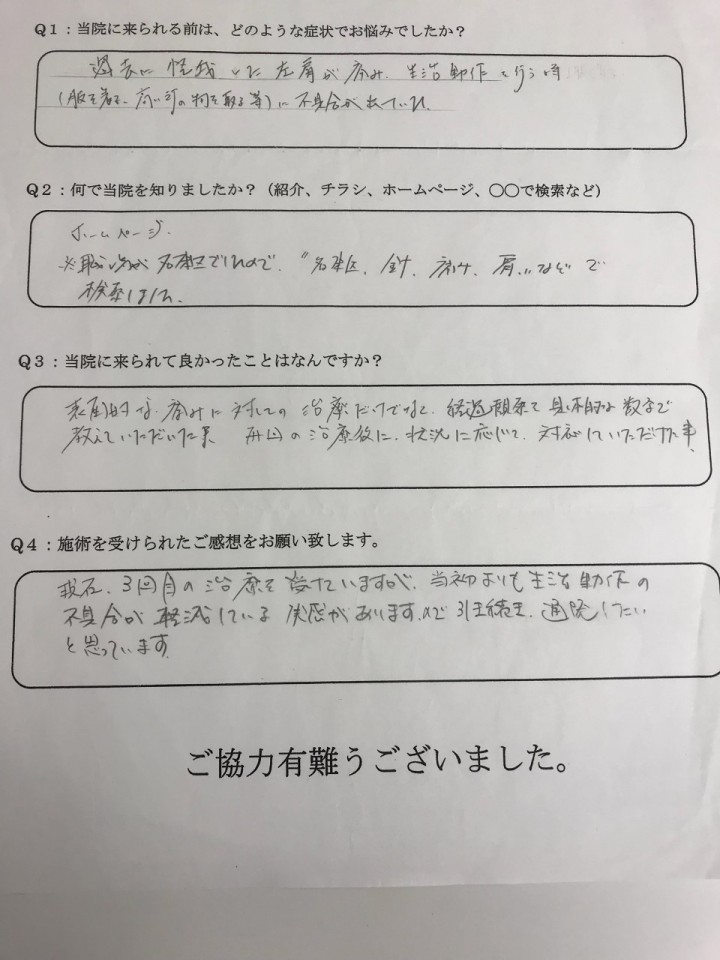 Q1：当院に来られる前は、どのような症状でお悩みでしたか？
過去に怪我した左肩が痛み、生活動作を行う時
(服を着る、高い所の物を取る等)に不具合が出ていた。
Q2：何で当院を知りましたか？（紹介、チラシ、ホームページ、〇〇で検索など）
ホームページ.
※職場が名東区でしたので、"名東区、針、痛み、肩"などで
検索しました。
Q3：当院に来られて良かったことはなんですか？
表面的な痛みに対しての治療だけでなく、経過観察で具体的な数まで
教えていただいた事 毎回の治療後に、状況に応じて、対応していただけた事
Q4：施術を受けられたご感想をお願い致します。
現在、3回目の治療を受けていますが、当初よりも生活動作の
不具合が軽減している実感がありますので引き続き、通院したい
と思っています。
ご協力有難うございました。